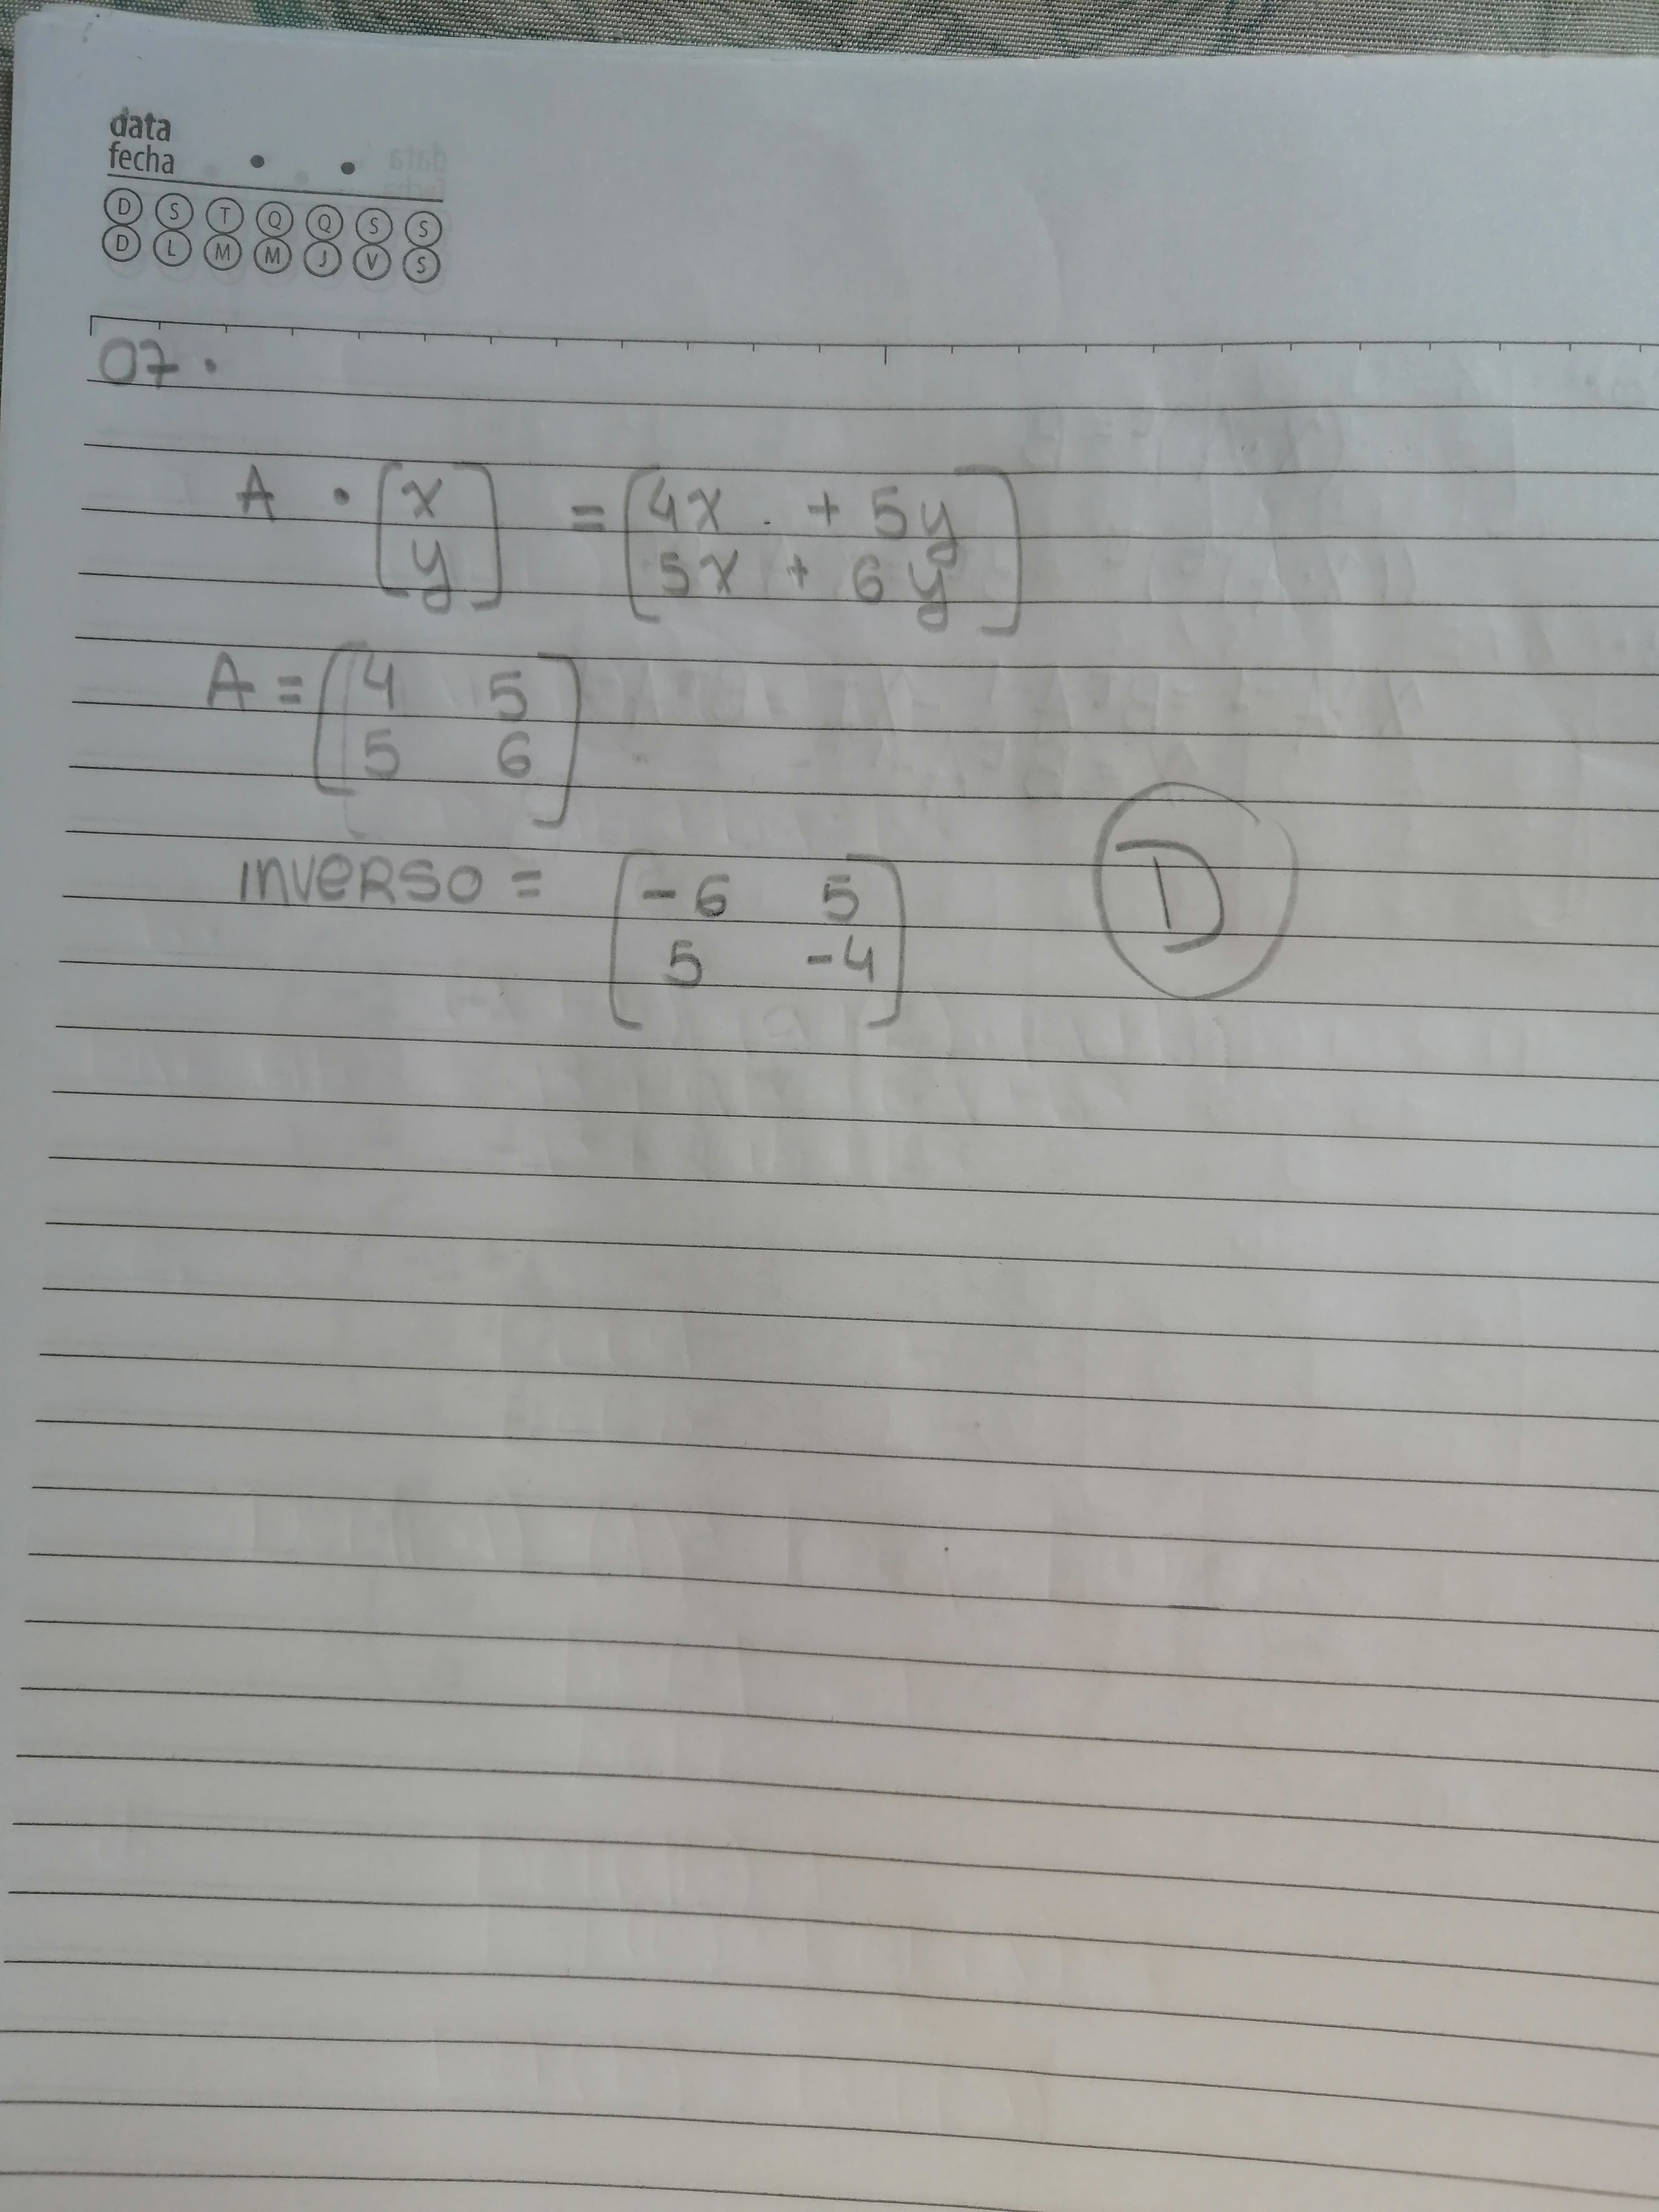 data
fecha
D S T Q Q S S
D L M M J V S
07.
A · [x y] = [4x + 5y
5x + 6y]
A = [4 5
5 6]
INVERSO = [-6 5
5 -4]
D